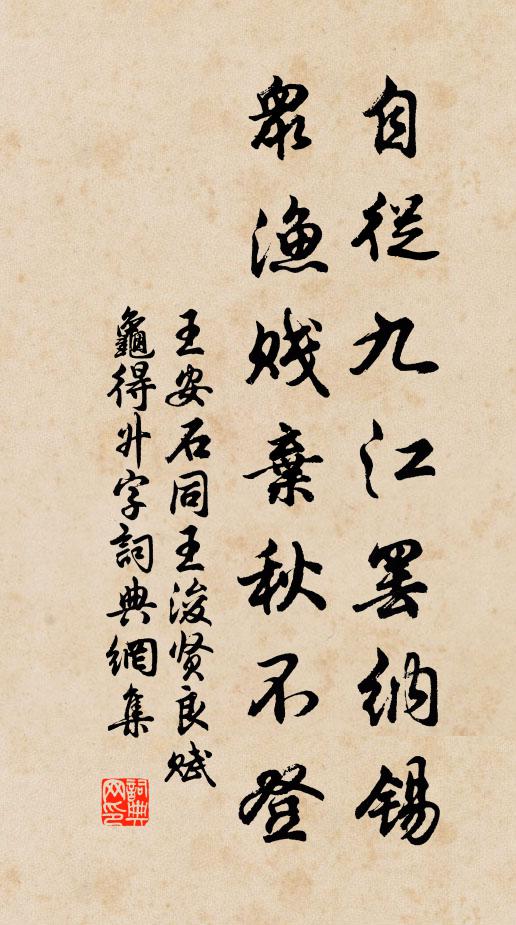 自從九江罢納錫
眾漁賤棄秋不登
王安石同王浚贤良赋
龜得升字詞典網集
詞典网印